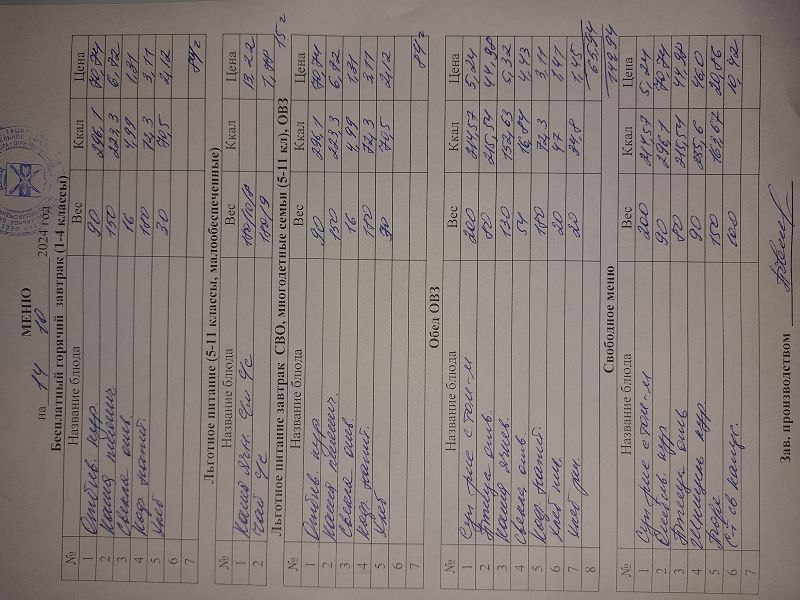 МЕНЮ
на 14 10 2024 год
Бесплатный горячий завтрак (1-4 классы)
№ Название блюда Вес Ккал Цена
1 Отбив. кур. 90 296,1 70,74
2 Каша 150 223,3 6,72
3 Свекла отв. 16 4,99 1,31
4 Коф. напит. 180 72,3 3,11
5 Хлеб 30 70,5 2,12
6
7 84 г
Льготное питание (5-11 классы, малообеспеченные)
№ Название блюда Вес Ккал Цена
1 Каша ячн. 13,22
2 Чай 15 г
Льготное питание завтрак СВО, многодетные семьи (5-11 кл), ОВЗ
№ Название блюда Вес Ккал Цена
1 Отбив. кур. 90 296,1 70,74
2 Каша 150 223,3 6,72
3 Свекла отв. 16 4,99 1,31
4 Коф. напит. 180 72,3 3,11
5 Хлеб 30 70,5 2,12
6
7 84 г
Обед ОВЗ
№ Название блюда Вес Ккал Цена
1 Суп рис с том-м 200 214,57 5,24
2 Птица отв. 80 215,54 44,98
3 Каша ячнев. 130 152,63 6,32
4 Свекла отв. 54 16,84 4,43
5 Коф. напит. 180 72,3 3,11
6 Хлеб 20 47 1,41
7 Хлеб рж. 20 34,8 1,45
8
Свободное меню 149,94
№ Название блюда Вес Ккал Цена
1 Суп рис с том-м 200 214,57 5,24
2 Отбив. кур 90 296,1 70,74
3 Птица отв 80 215,54 44,98
4 Шницель кур. 90 255,6 46,0
5 Пюре 150 163,67 20,86
6 Св капус. 100 10,42
Зав. производством